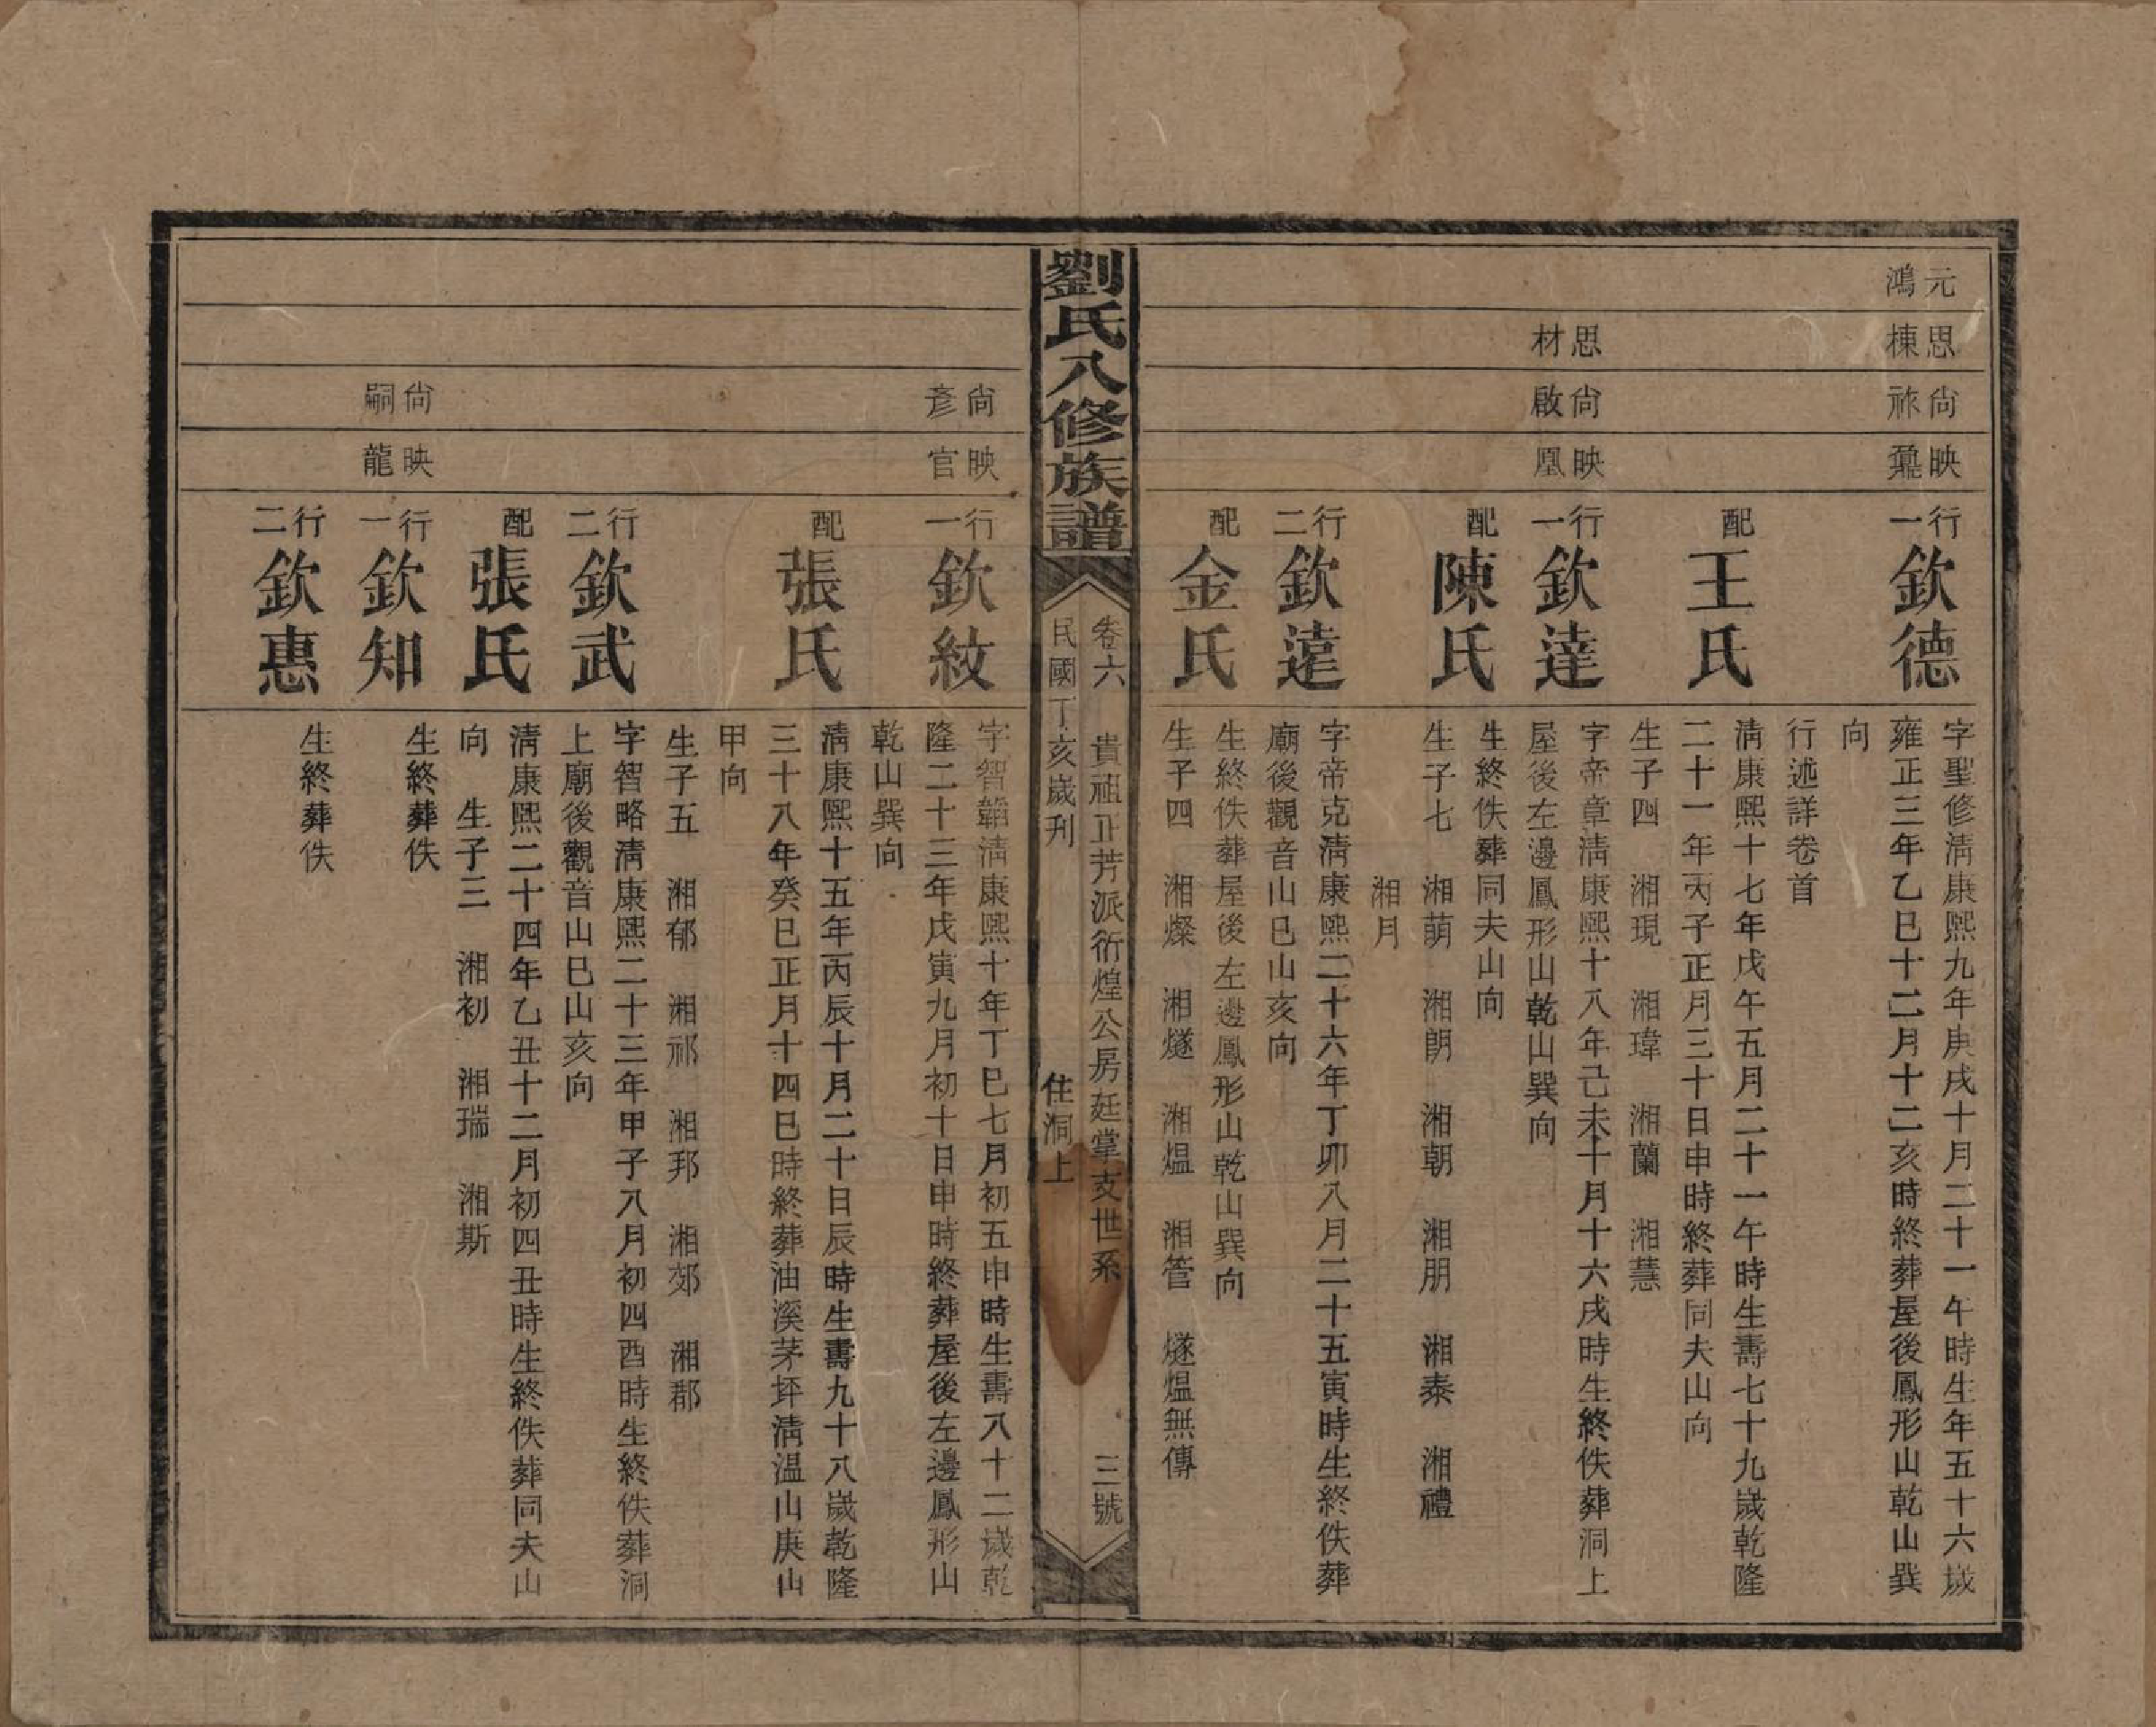 元鴻
思棟
尙祢
映鼐
行一
欽德
字聖修淸康熙九年庚戌十月二十一午時生年五十六歲
雍正三年乙巳十二月十二亥時終葬屋後鳳形山乾山巽
向
行述詳卷首
配
王氏
淸康熙十七年戊午五月二十一午時生壽七十九歲乾隆
二十一年丙子正月三十日申時終葬同夫山向
生子四 湘現 湘瑋 湘蘭 湘慧
思材
尙啟
映凰
行一
欽達
字帝章淸康熙十八年己未十月十六戌時生終佚葬洞上
屋後左邊鳳形山乾山巽向
配
陳氏
生終佚葬同夫山向
生子七 湘萠 湘朗 湘朝 湘朋 湘泰 湘禮
湘月
行二
欽遠
字帝克淸康熙二十六年丁卯八月二十五寅時生終佚葬
廟後觀音山巳山亥向
配
金氏
生終佚葬屋後左邊鳳形山乾山巽向
生子四 湘燦 湘燧 湘煴 湘管 燧煴無傳
劉氏八修族譜
卷六 貴祖正芳派衍煌公房廷掌支世系 三號
民國丁亥歲刋 住洞上
尙彥
映官
行一
欽紋
字智韜淸康熙十年丁巳七月初五申時生壽八十二歲乾
隆二十三年戊寅九月初十日申時終葬屋後左邊鳳形山
乾山巽向
配
張氏
淸康熙十五年丙辰十月二十日辰時生壽九十八歲乾隆
三十八年癸巳正月十四巳時終葬油溪茅坪淸温山庚山
甲向
生子五 湘郁 湘祁 湘邦 湘郊 湘郡
行二
欽武
字智略淸康熙二十三年甲子八月初四酉時生終佚葬洞
上廟後觀音山巳山亥向
配
張氏
淸康熙二十四年乙丑十二月初四丑時生終佚葬同夫山
向 生子三 湘初 湘瑞 湘斯
尙嗣
映龍
行一
欽知
生終葬佚
行二
欽惠
生終葬佚